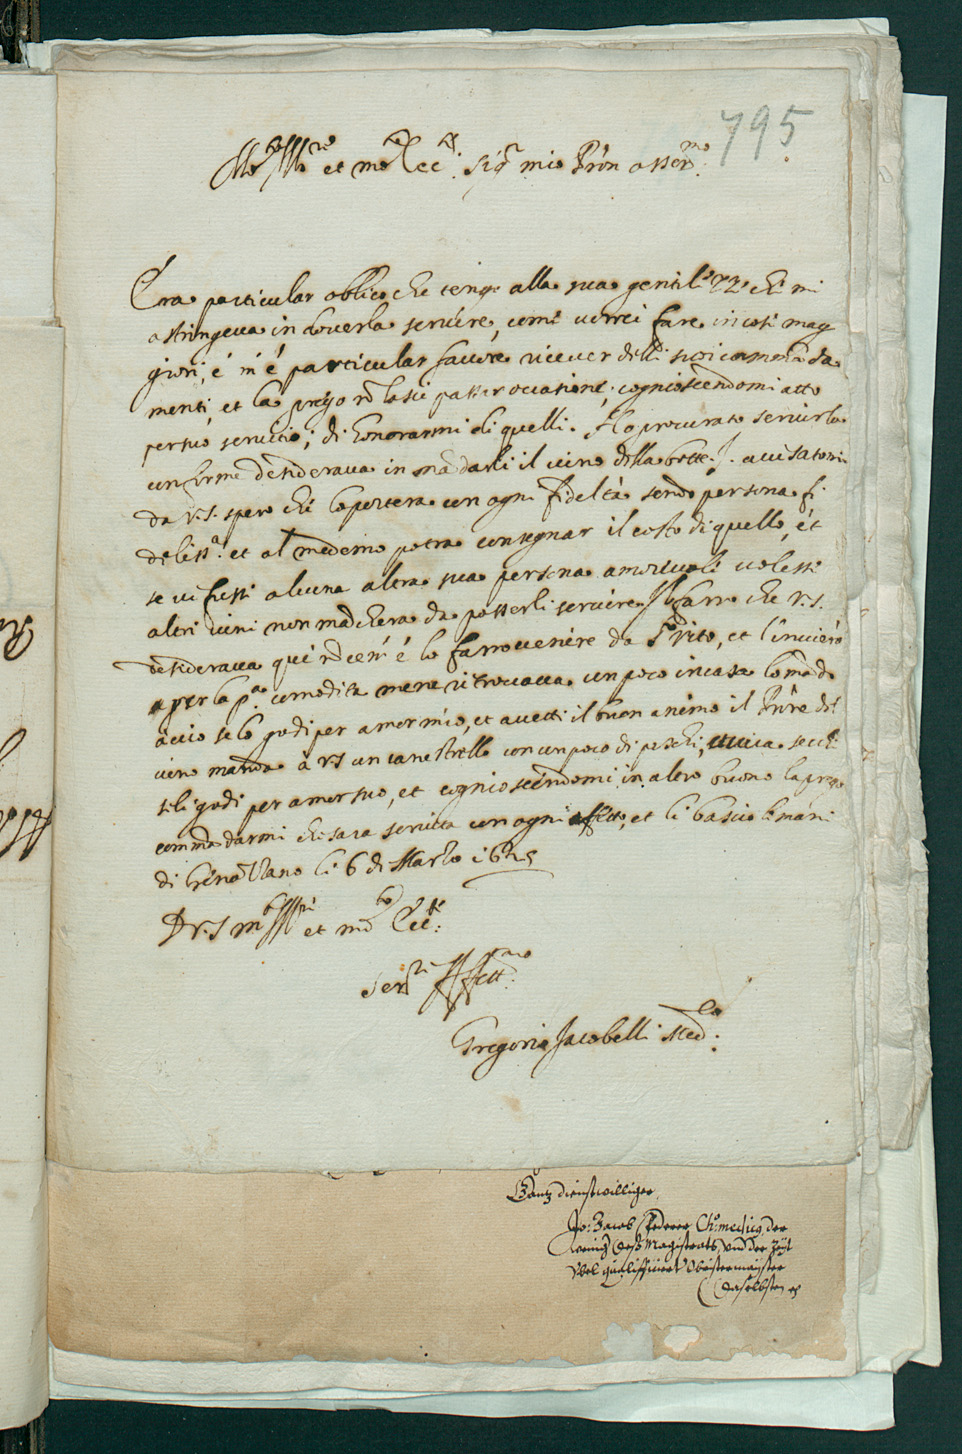 795
Mo Illre et mo Ecc: Sigr mio Prōn osser.mo
Era particular obligo che tengo alla sua gentilezza che mi
astringeva in doverla servire, come vorrei fare in cose mag
giori, e m'é particular favore ricever delli suoi commāda
menti, et la prego nō lasci passar occasione, cognioscendomi atto
per suo servitio; di honorarmi di quelli. Ho procurato servirla
conforme desiderava in mādarli il vino della botte avisatomi
da v.s. spero che la portera con ogni fideltà sendo persona fi
deliss.a et al medemo potra consegnar il costo di quello, ét
se vi fusse alcuna altra sua persona amorevole volesse
altri vini non mācherà da posserli servire. Il farro che v.s.
desiderava qui nō cen'é é lo farro venire da S. Vito, et l'invierò
per la p.a comodita mene ritrovava un poco in casa lo mādo
acciò se lo godi per amor mio, et accetti il buon animo il Prīre del
vino manda à v.s. un canestrello con un poco di peschi, uvica secca
se li godi per amor suo, et cognioscendomi in altro buono la prego
commādarmi che sara servita con ogni affetto, et li bascio le mani
di Genazzano li 6 di Marzo 1625
D v.s. m Illre et mo Ecc.te
Ser.re Aff.mo
Gregorio Jacobelli Med.co
Gantz dienstwilliger
Jo: Jacob
Magistratt, und der Zeit
daselbsten